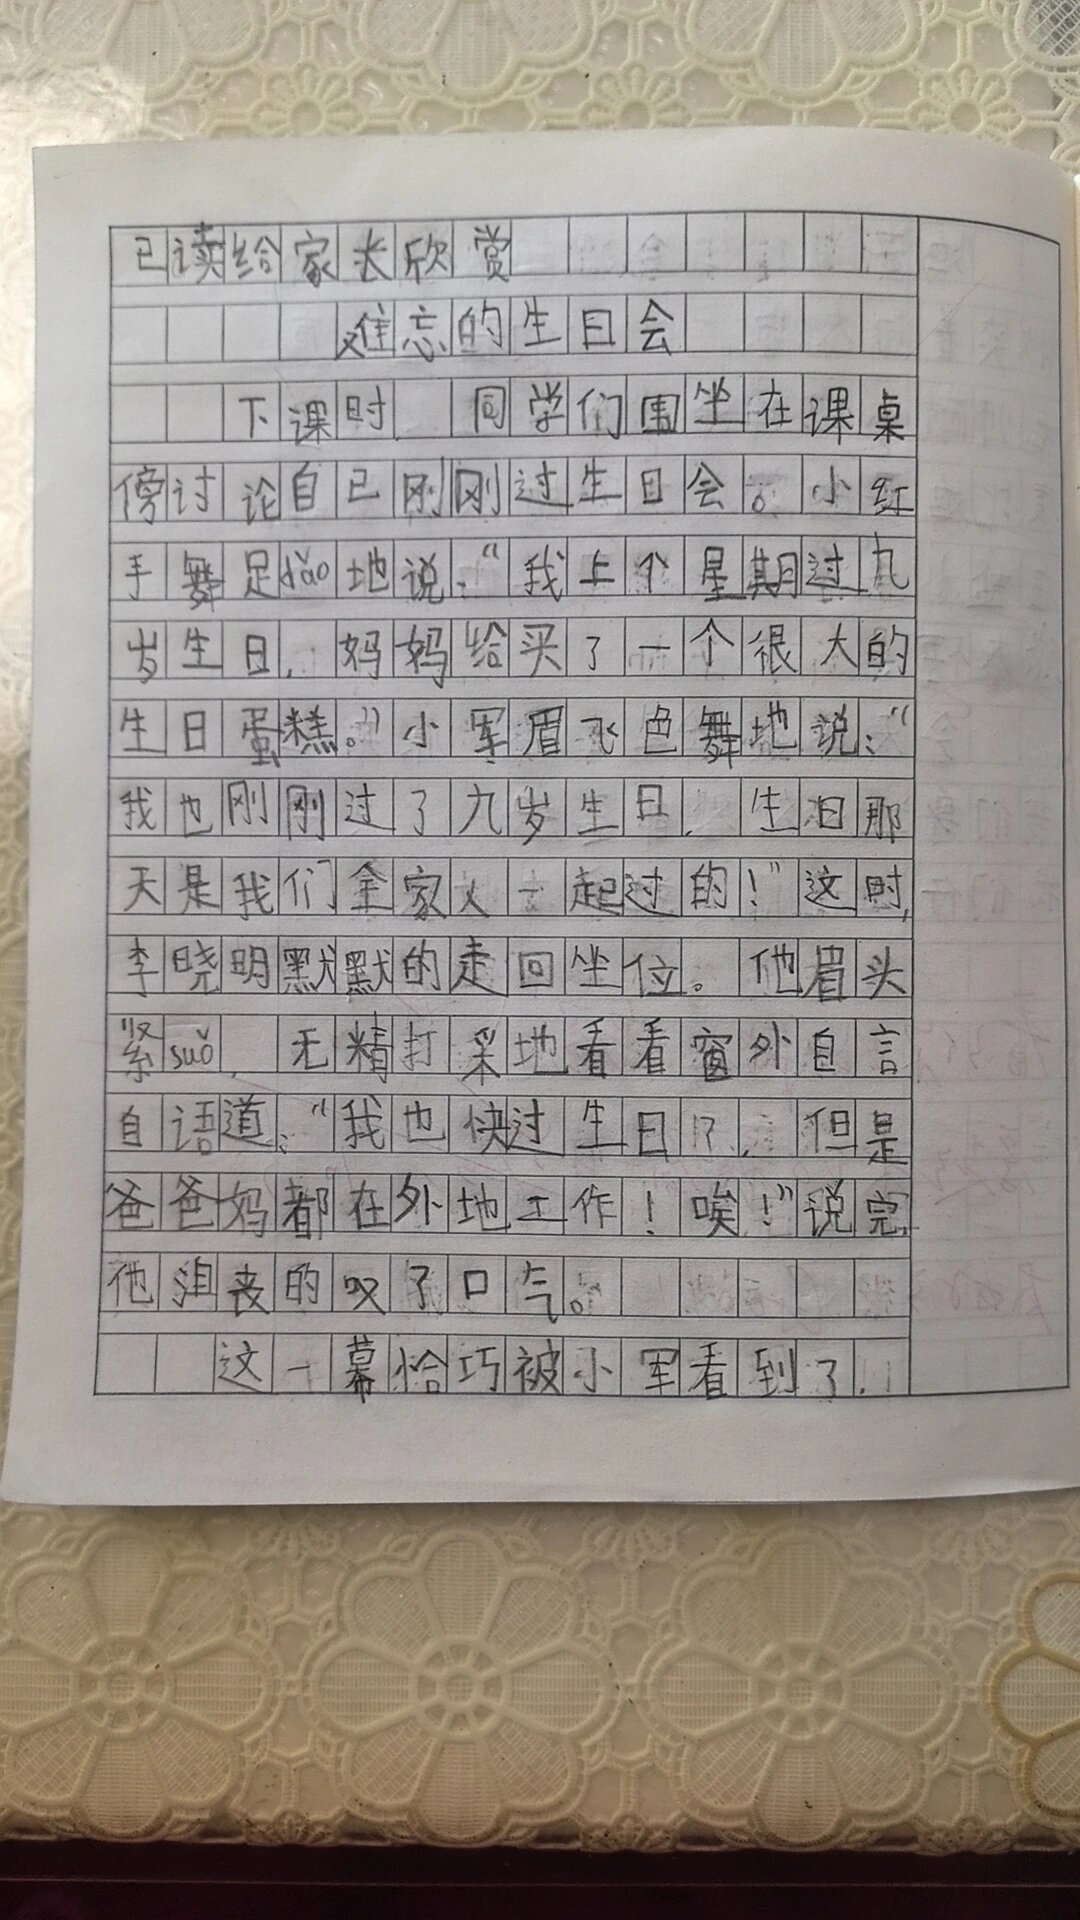 已读给家长欣赏
难忘的生日会
下课时,同学们围坐在课桌
傍讨论自已刚刚过生日会。小红
手舞足dǎo地说:“我上个星期过九
岁生日,妈妈给买了一个很大的
生日蛋糕。”小军眉飞色舞地说:“
我也刚刚过了九岁生日,生日那
天是我们全家人一起过的!”这时,
李晓明默默的走回坐位。他眉头
紧suǒ,无精打采地看看窗外自言
自语道:“我也快过生日了,但是
爸爸妈都在外地工作!唉!”说完,
他沮丧的叹了口气。
这一幕恰巧被小军看到了,